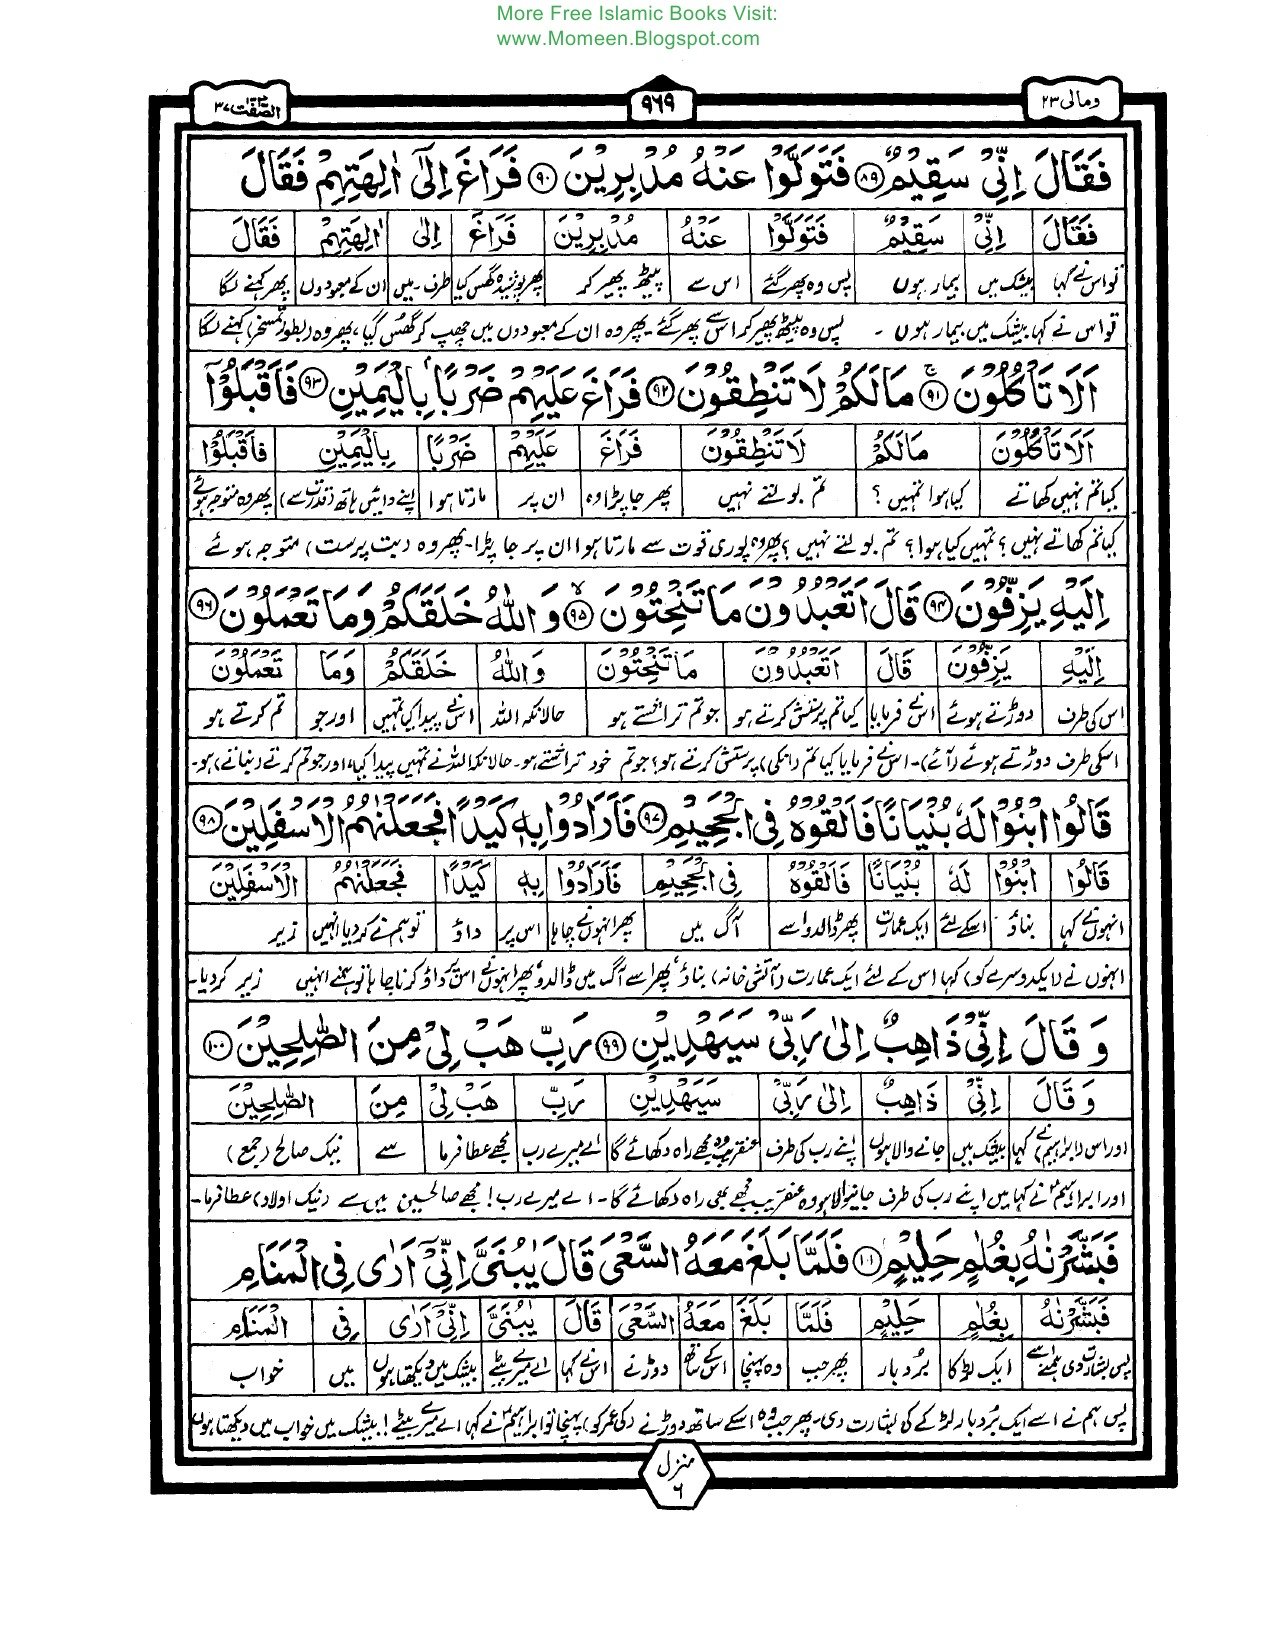 More Free Islamic Books Visit:
www.Momeen.Blogspot.com
ومالی ۲۳
۹۶۹
الصّٰفّٰت ۳۷
فَقَالَ اِنِّیْ سَقِیْمٌ ۸۹ فَتَوَلَّوْا عَنْهُ مُدْبِرِیْنَ ۹۰ فَرَاغَ اِلٰۤی اٰلِهَتِهِمْ فَقَالَ
فَقَالَ اِنِّیْ سَقِیْمٌ فَتَوَلَّوْا عَنْهُ مُدْبِرِیْنَ فَرَاغَ اِلٰی اٰلِهَتِهِمْ فَقَالَ
تو اس نے کہا بیشک میں بیمار ہوں پس وہ پھر گئے اس سے پیٹھ پھیر کر پھر پوشیدہ گھس گیا طرف۔میں ان کے معبودوں پھر کہنے لگا
تو اس نے کہا بیشک میں بیمار ہوں ۔ پس وہ پیٹھ پھیر کر اس سے پھر گئے ۔ پھر وہ ان کے معبودوں میں چھپ کر گھس گیا، پھر وہ (بطور تمسخر) کہنے لگا
اَلَا تَاْكُلُوْنَ ۹۱ مَا لَكُمْ لَا تَنْطِقُوْنَ ۹۲ فَرَاغَ عَلَیْهِمْ ضَرْبًۢا بِالْیَمِیْنِ ۹۳ فَاَقْبَلُوْۤا
اَلَا تَاْكُلُوْنَ مَالَكُمْ لَا تَنْطِقُوْنَ فَرَاغَ عَلَیْهِمْ ضَرْبًا بِالْیَمِیْنِ فَاَقْبَلُوْا
کیا تم نہیں کھاتے کیا ہوا تمہیں ؟ تم بولتے نہیں پھر جا پڑا وہ ان پر مارتا ہوا اپنے دائیں ہاتھ (قدرت سے) پھر وہ متوجہ ہوئے
کیا تم کھاتے نہیں ؟ تمہیں کیا ہوا ؟ تم بولتے نہیں ؟ پھر وہ پوری قوت سے مارتا ہوا ان پر جا پڑا ۔ پھر وہ (بت پرست) متوجہ ہوئے
اِلَیْهِ یَزِفُّوْنَ ۹۴ قَالَ اَتَعْبُدُوْنَ مَا تَنْحِتُوْنَ ۹۵ وَاللّٰهُ خَلَقَكُمْ وَمَا تَعْمَلُوْنَ ۹۶
اِلَیْهِ یَزِفُّوْنَ قَالَ اَتَعْبُدُوْنَ مَا تَنْحِتُوْنَ وَاللّٰهُ خَلَقَكُمْ وَمَا تَعْمَلُوْنَ
اس کی طرف دوڑتے ہوئے اس نے فرمایا کیا تم پرستش کرتے ہو جو تم تراشتے ہو حالانکہ اللہ اس نے پیدا کیا تمہیں اور جو تم کرتے ہو
اسکی طرف دوڑتے ہوئے (آئے) ۔ اس نے فرمایا کیا تم (انکی) پرستش کرتے ہو؟ جو تم خود تراشتے ہو ۔ حالانکہ اللہ نے تمہیں پیدا کیا، اور جو تم کرتے (بناتے) ہو ۔
قَالُوا ابْنُوْا لَهٗ بُنْیَانًا فَاَلْقُوْهُ فِی الْجَحِیْمِ ۹۷ فَاَرَادُوْا بِهٖ كَیْدًا فَجَعَلْنٰهُمُ الْاَسْفَلِیْنَ ۹۸
قَالُوْا ابْنُوْا لَهٗ بُنْیَانًا فَاَلْقُوْهُ فِی الْجَحِیْمِ فَاَرَادُوْا بِهٖ كَیْدًا فَجَعَلْنٰهُمُ الْاَسْفَلِیْنَ
انہوں نے کہا بناؤ اسکے لئے ایک عمارت پھر ڈالدو اسے آگ میں پھر انہوں نے چاہا اس پر داؤ تو ہم نے کر دیا انہیں زیر
انہوں نے (ایکدوسرے کو) کہا اس کے لئے ایک عمارت (آتش خانہ) بناؤ، پھر اسے آگ میں ڈالدو، پھر انہوں نے اس پر داؤ کرنا چاہا تو ہمنے انہیں زیر کردیا ۔
وَقَالَ اِنِّیْ ذَاهِبٌ اِلٰی رَبِّیْ سَیَهْدِیْنِ ۹۹ رَبِّ هَبْ لِیْ مِنَ الصّٰلِحِیْنَ ۱۰۰
وَقَالَ اِنِّیْ ذَاهِبٌ اِلٰی رَبِّیْ سَیَهْدِیْنِ رَبِّ هَبْ لِیْ مِنَ الصّٰلِحِیْنَ
اور اس (ابراہیم) نے کہا بیشک میں جانے والا ہوں اپنے رب کی طرف عنقریب وہ مجھے راہ دکھائے گا اے میرے رب مجھے عطا فرما سے نیک صالح (جمع)
اور ابراہیمؑ نے کہا میں اپنے رب کی طرف جانیوالا ہوں وہ عنقریب مجھے راہ دکھائے گا ۔ اے میرے رب ! مجھے صالحین میں سے (نیک اولاد) عطا فرما ۔
فَبَشَّرْنٰهُ بِغُلٰمٍ حَلِیْمٍ ۱۰۱ فَلَمَّا بَلَغَ مَعَهُ السَّعْیَ قَالَ یٰبُنَیَّ اِنِّیْۤ اَرٰی فِی الْمَنَامِ
فَبَشَّرْنٰهُ بِغُلٰمٍ حَلِیْمٍ فَلَمَّا بَلَغَ مَعَهُ السَّعْیَ قَالَ یٰبُنَیَّ اِنِّیْۤ اَرٰی فِی الْمَنَامِ
پس بشارت دی ہمنے اسے ایک لڑکا بُردبار پھر جب وہ پہنچا اس کے ساتھ دوڑنے اس نے کہا اے میرے بیٹے بیشک میں دیکھتا ہوں میں خواب
پس ہم نے اسے ایک بُردبار لڑکے کی بشارت دی ۔ پھر جب وہ اسکے ساتھ دوڑنے (کی عمر کو) پہنچا تو ابراہیمؑ نے کہا اے میرے بیٹے ! بیشک میں خواب میں دیکھتا ہوں
منزل
۶